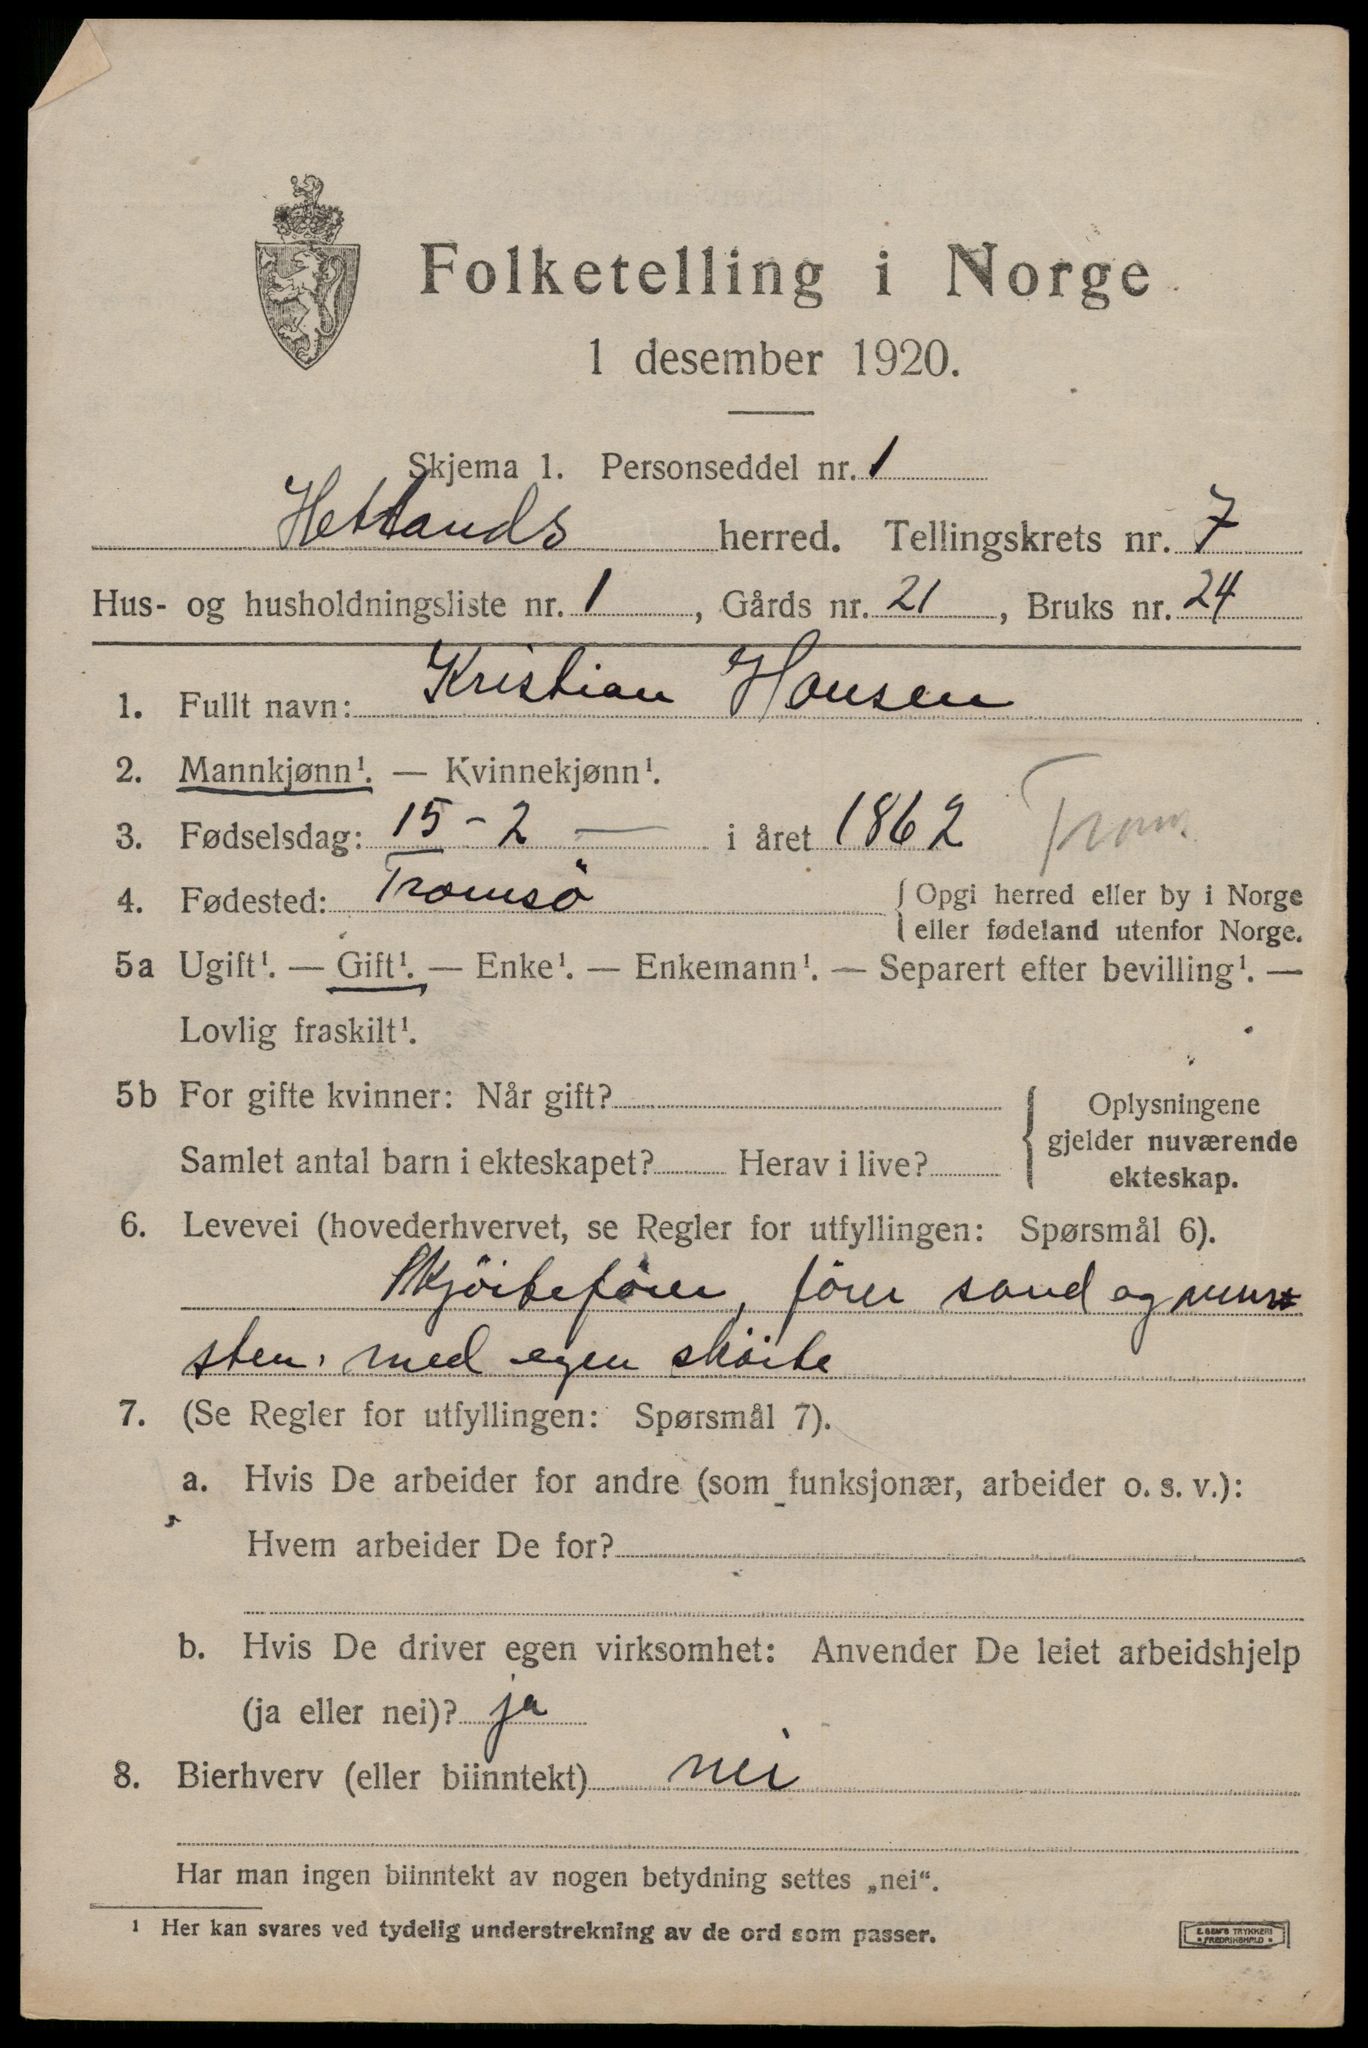 Folketelling i Norge
1 desember 1920.
Skjema 1. Personseddel nr. 1
Hetlands herred. Tellingskrets nr. 7
Hus- og husholdningsliste nr. 1, Gårds nr. 21, Bruks nr. 24
1. Fullt navn: Kristian Hansen
2. Mannkjønn¹. — Kvinnekjønn¹.
3. Fødselsdag: 15 - 2 — i året 1862 Trom.
4. Fødested: Tromsö { Opgi herred eller by i Norge
eller fødeland utenfor Norge.
5a Ugift¹. — Gift¹. — Enke¹. — Enkemann¹. — Separert efter bevilling¹. —
Lovlig fraskilt¹.
5b For gifte kvinner: Når gift?
Samlet antal barn i ekteskapet? Herav i live?
{ Oplysningene
gjelder nuværende
ekteskap.
6. Levevei (hovederhvervet, se Regler for utfyllingen: Spørsmål 6).
Skjöitefører, förer sand og mur
sten. med egen sköite
7. (Se Regler for utfyllingen: Spørsmål 7).
a. Hvis De arbeider for andre (som funksjonær, arbeider o. s. v.):
Hvem arbeider De for?
b. Hvis De driver egen virksomhet: Anvender De leiet arbeidshjelp
(ja eller nei)? ja
8. Bierhverv (eller biinntekt) nei
Har man ingen biinntekt av nogen betydning settes „nei“.
¹ Her kan svares ved tydelig understrekning av de ord som passer.
E. SEM'S TRYKKERI
FREDRIKSHALD